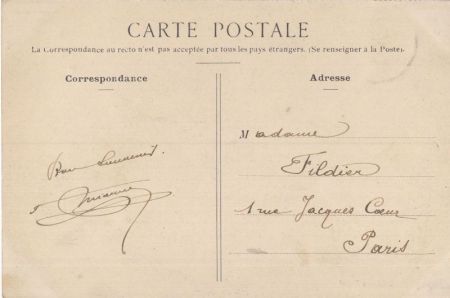 CARTE POSTALE
La Correspondance au recto n'est pas acceptée par tous les pays étrangers. (Se renseigner à la Poste).
Correspondance
Adresse
Bon Souvenir
Madame
Fildier
1 rue Jacques Cœur
Paris